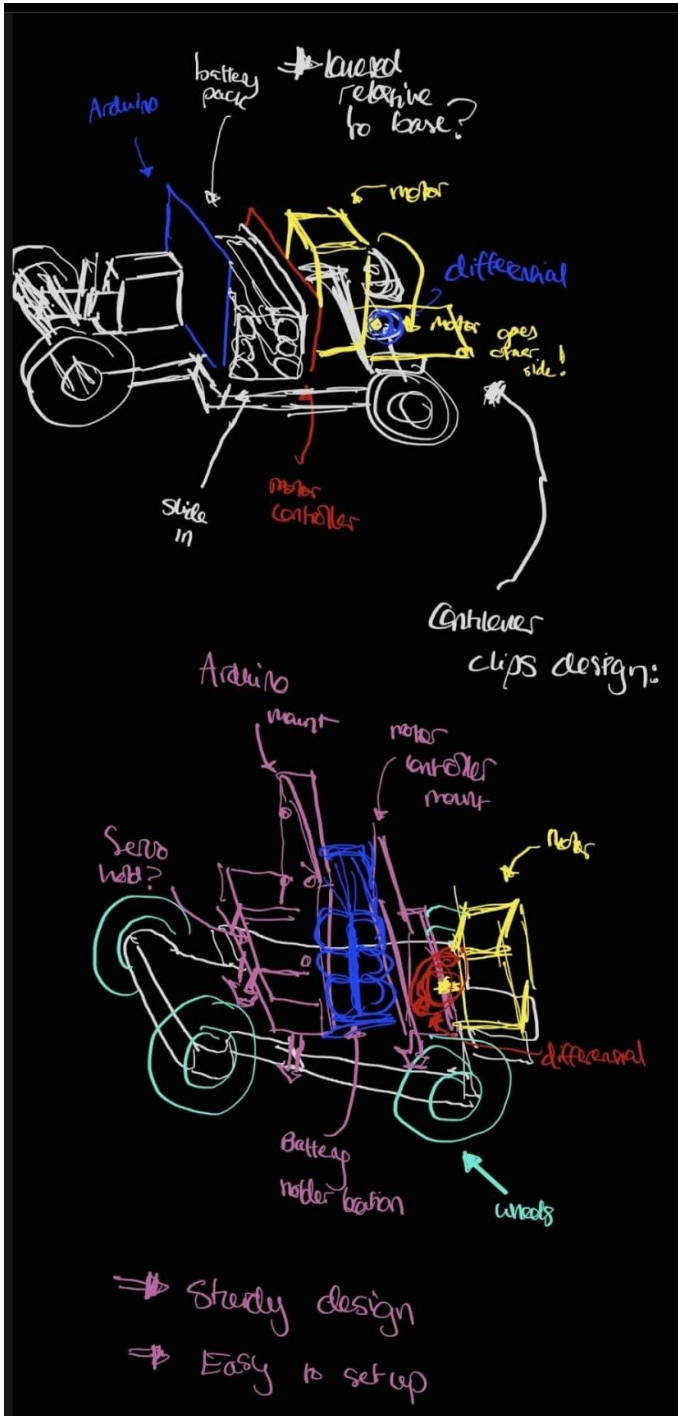 battery
pack
⇒ lowered
relative
to base?
Arduino
motor
differential
motor goes
on other
side!
slide
in
motor
controller
Cantilever
clips design:
Arduino
mount
motor
controller
mount
Servo
hold?
Motor
differential
Battery
holder location
wheels
⇒ Sturdy design
⇒ Easy to set up